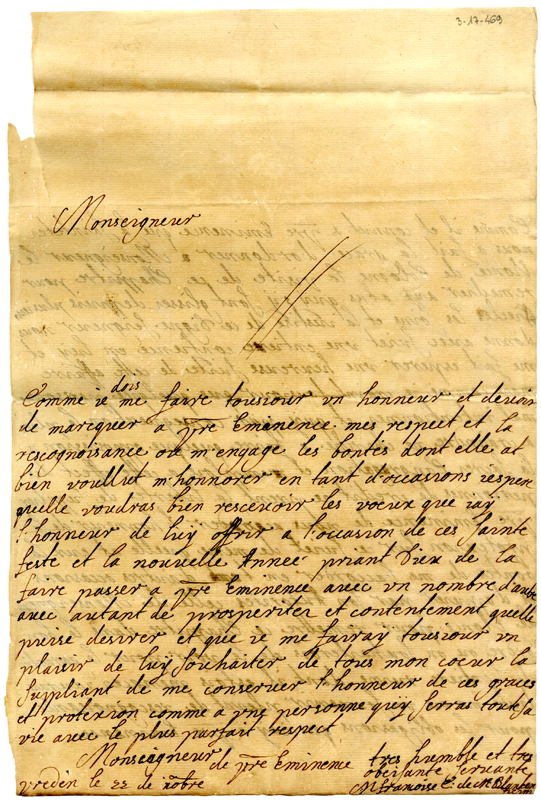 3-17-469
Monseigneur
dois
Comme ie me faire tousiour vn honneur et devoir
de marcquer a vre Eminence mes respect et la
rescognoisance ou m'engage les bontes dont elle at
bien voullut m'honnorer en tant d'occasions iespere
quelle voudras bien rescevoir les voeux que iay
l'honneur de luy offrir a l'occasion de ces sainte
feste et la nouvelle Annee priant Dieu de la
faire passer a vre Eminence avec vn nombre d'autre
avec autant de prosperitez et contentement quelle
puise desirer et que ie me fairay tousiour vn
plaisir de luy souhaiter de tous mon coeur la
supliant de me conserver l'honneur de ces graces
et protexion comme a vne personne quy serras toute sa
vie avec le plus parfait respect
Monseigneur de vre Eminence tres humble et tres
obeisante servante
vreden le 22 de xbre M francoise E. de